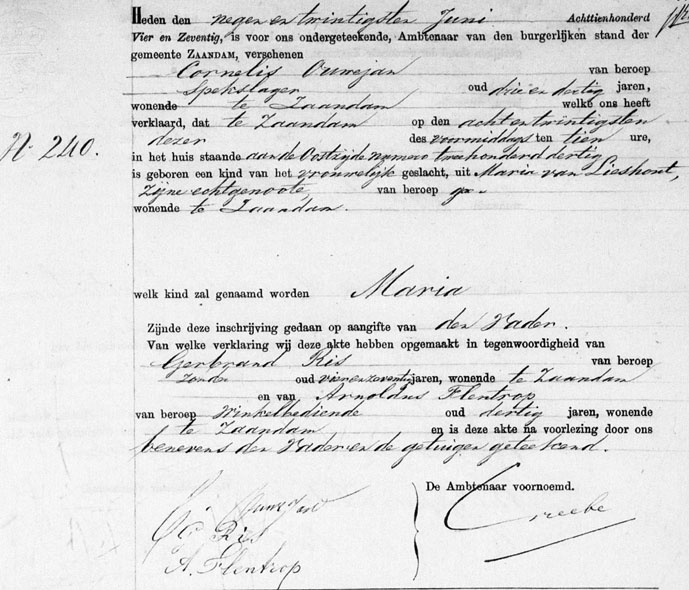 Heden den negen en twintigsten Juni Achttienhonderd
Vier en Zeventig, is voor ons ondergeteekende, Ambtenaar van den burgerlijken stand der
gemeente ZAANDAM, verschenen
Cornelis Ouwejan van beroep
Spekslager oud drie en dertig jaren,
wonende te Zaandam welke ons heeft
verklaard, dat te Zaandam op den acht en twintigsten
dezer des voormiddags ten tien ure,
N. 240.
in het huis staande aan de Oostzijde nummero twee honderd dertig
is geboren een kind van het vrouwelijk geslacht, uit Maria van Lieshout,
zijne echtgenoote, van beroep
wonende te Zaandam.
welk kind zal genaamd worden Maria
Zijnde deze inschrijving gedaan op aangifte van den Vader.
Van welke verklaring wij deze akte hebben opgemaakt in tegenwoordigheid van
Gerbrand Ris van beroep
Zonder oud vier en zeventig jaren, wonende te Zaandam
en van Arnoldus Flentrop
van beroep Winkelbediende oud dertig jaren, wonende
te Zaandam en is deze akte na voorlezing door ons
benevens den Vader en de getuigen geteekend.
De Ambtenaar voornoemd.
Ris
A. Flentrop